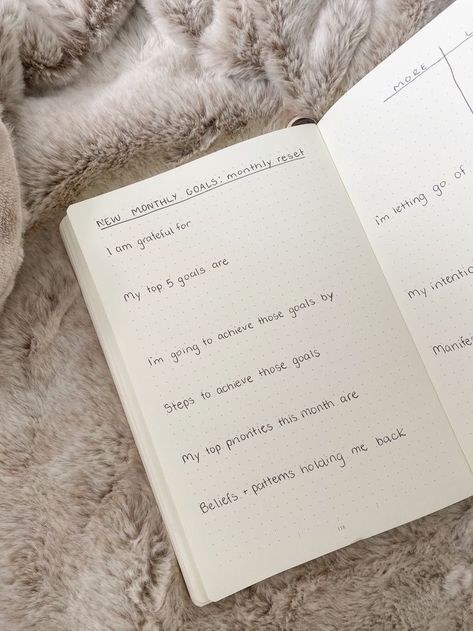 NEW MONTHLY GOALS: monthly reset
I am grateful for
My top 5 goals are
I'm going to achieve those goals by
Steps to achieve those goals
My top priorities this month are
Beliefs + patterns holding me back
MORE
I'm letting go of
My